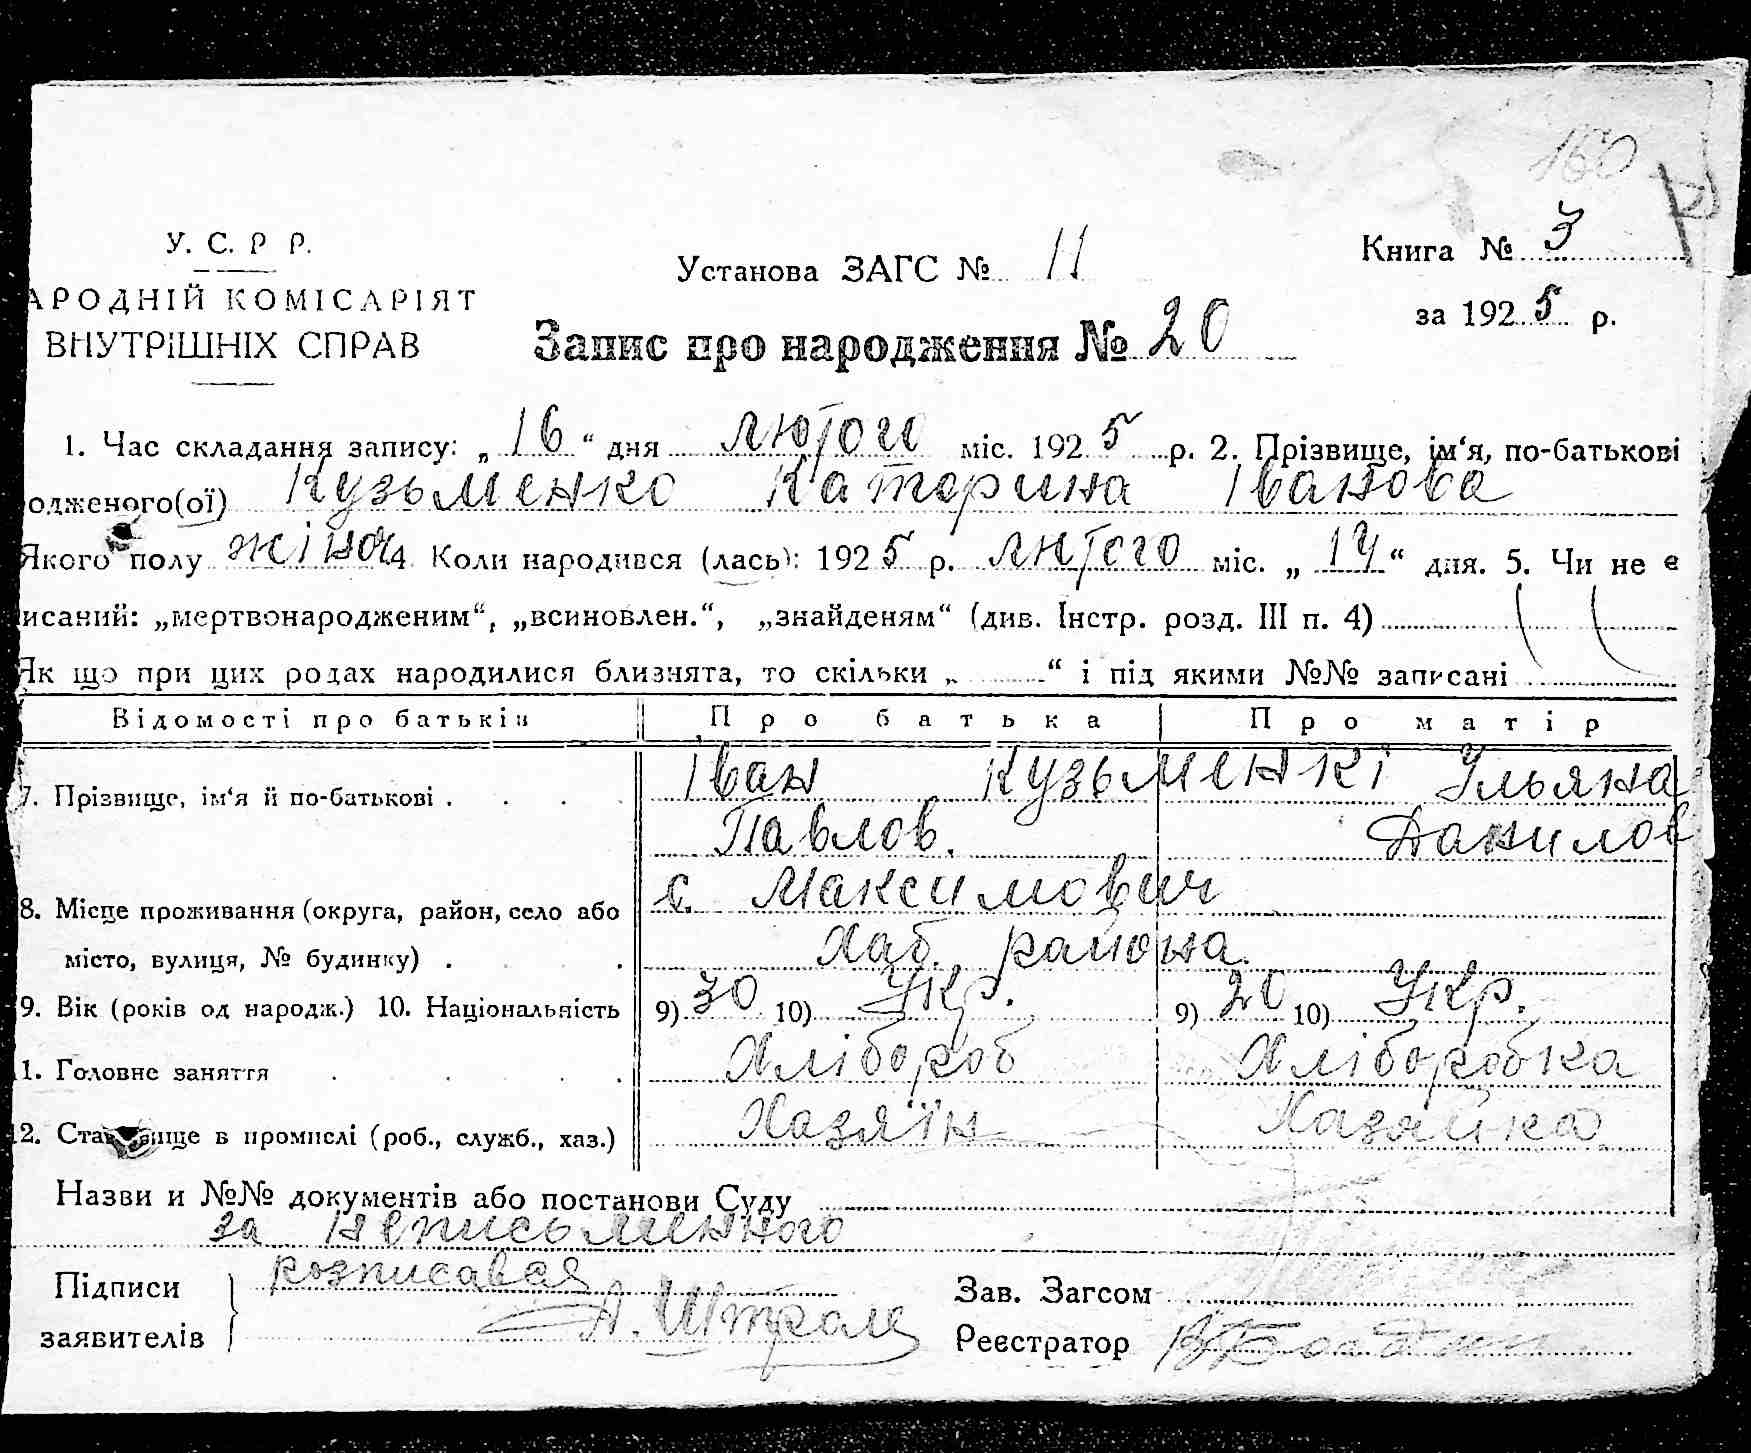 160
У. С. Р Р.
АРОДНІЙ КОМІСАРІЯТ
ВНУТРІШНІХ СПРАВ
Установа ЗАГС № 11
Книга № 3
за 1925 р.
Запис про народження № 20
1. Час складання запису: „16“ дня лютого міс. 1925 р. 2. Прізвище, ім‘я, по-батькові
одженого(ої) Кузьменко Катерина Іванова
Якого полу жіноч 4 Коли народився (лась): 1925 р. лютого міс. „14“ дня. 5. Чи не є
исаний: „мертвонародженим“, „всиновлен.“, „знайденям“ (див. Інстр. розд. III п. 4)
Як що при цих родах народилися близнята, то скільки „ “ і під якими №№ записані
Відомості про батьків Про батька Про матір
7. Прізвище, ім‘я й по-батькові . . . . Іван Кузьменкі Ульяна
Павлов. Данилов
8. Місце проживання (округа, район, село або с. Максимович
місто, вулиця, № будинку) . . Хаб. района.
9. Вік (років од народж.) 10. Національність 9) 30 10) Укр. 9) 20 10) Укр.
1. Головне заняття . . . . . Хлібороб Хліборобка
2. Становище в промислі (роб., служб., хаз.) Хазяїн Хазяйка
Назви и №№ документів або постанови Суду
за неписьменного
Підписи розписався
заявителів А. Штраль
Зав. Загсом
Реєстратор